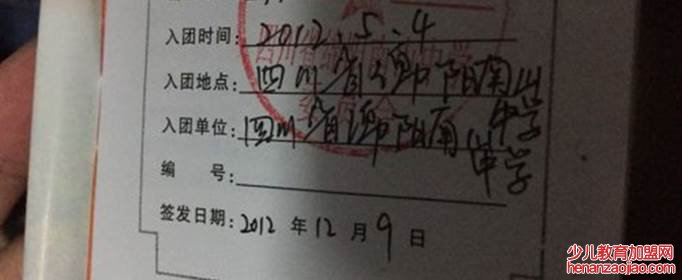 入团时间: 2012.5.4
入团地点: 四川省绵阳南山中学
入团单位: 四川省绵阳南山中学
编 号:
签发日期: 2012 年 12 月 9 日
少儿教育加盟网
henanzaojiao.com